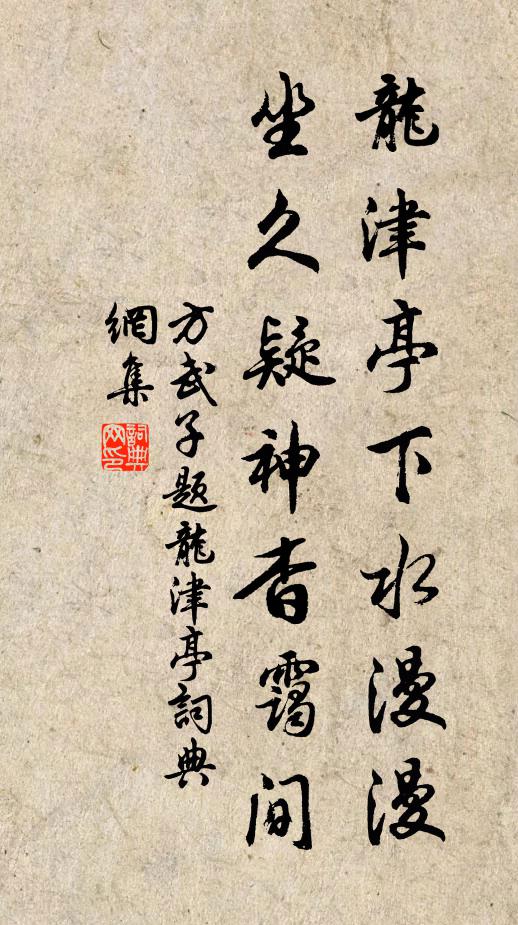 龍津亭下水漫漫
坐久疑神杳靄間
方武子題龍津亭詞典
網集
詞典
网印